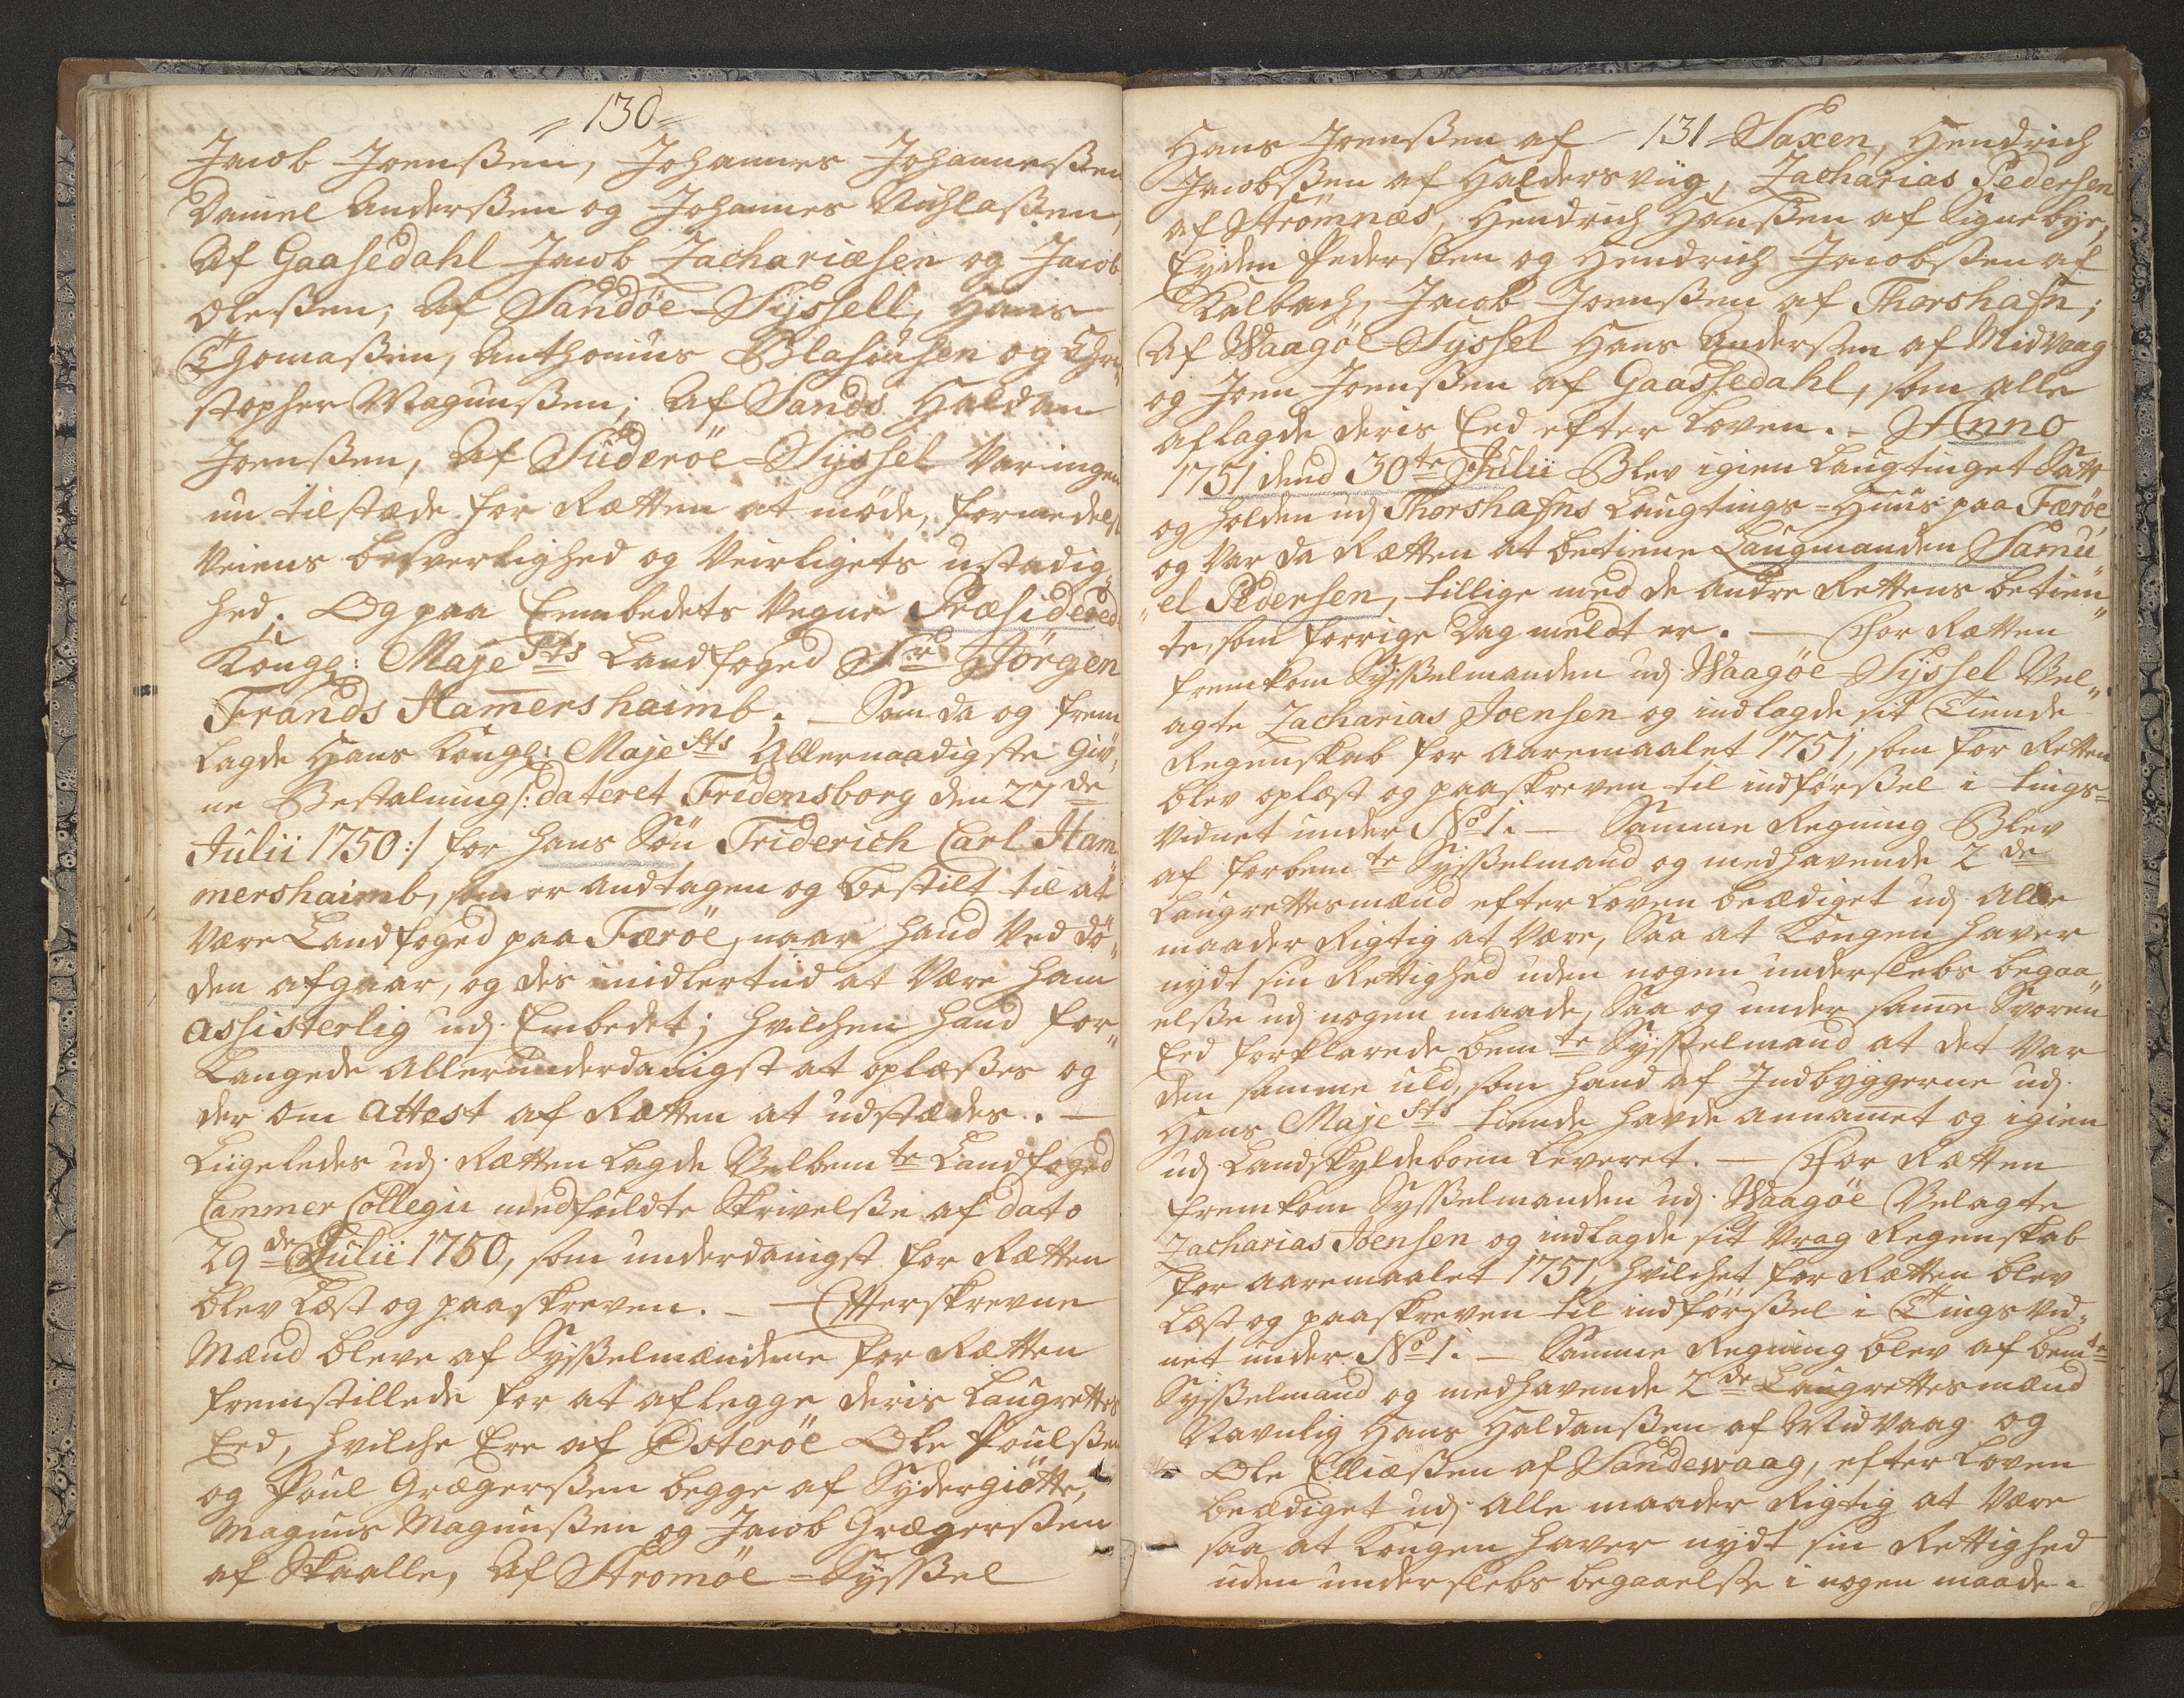 130
Jacob Joenßen, Johannes Johannesßen
Daniel Anderßen og Johannes Nichlaßen,
Af Gaasedahl Jacob Zachariæsen og Jacob
Oleßen; Af Sandöe-Sÿssell, Hans
Thomaßen, Anthonius Blasiusen og Chri„
stopher Magnußen; Af Sands Haldan
Joenßen, Af Süderöe-Sÿssel Var ingen
nu tilstæde for Rætten at møde, formedelst
Veiens besverlighed og Veirligets ustadig„
hed. Og paa Embedets Vegne Præsidered
Kongl: Majests Landfoged Sr Jörgen
Frands Hamershaimb. – Som da og frem
lagde Hans Kongl: Majests Allernaadigste giv„
ne Bestalning /: dateret Fridensborg den 27de
Julii 1750 :/ for hans Søn Friderich Carl Ham„
mershaimb, som er andtagen og bestilt til at
være Landfoged paa Færöe, naar hand ved dö„
den afgaar, og des imidlertiid at være ham
assisterlig udj Embedet; hvilchen hand for„
langede allerunderdanigst at oplæßes og
der om attest af Rætten at udstædes. –
Liigeledes udj Rætten lagde Velbemte Landfoged
Cammer Collegii medfuldte Skrivelße af dato
29de Julii 1750, som underdanigst for Rætten
blev læst og paaskreven. – Efterskrevne
Mænd bleve af Sysselmændene for Rætten
fremstillede for at aflegge deris Laugrettes
Eed, hvilche Ere af Østeröe Ole Poulßen
og Poul Grægerßen begge af Sydergiötte,
Magnus Magnußen og Jacob Grægerßen
af Skaalle, Af Strömöe-Sysßel
131
Hans Joenßen af Saxen, Hendrich
Jacobßen af Haldersviig, Zacharias Pedersen
af Strömnæs, Hendrich Hanßen af Signebÿe,
Eyden Pederßen og Hendrich Jacobßen af
Kalbach, Jacob Joenßen af Thorshafn;
Af Waagöe-Sÿssel Hans Anderßen af Midvaag
og Joen Joenßen af Gaassedahl, som alle
aflagde deris Eed efter Loven. – Anno
1751 dend 30te Julii Blev igien Laugtinget Satt
og holden udj Thorshafns Laugtings-Huus paa Færöe,
og Var da Rætten at betiene Laugmanden Samu„
el Pedersen, tillige med de andre Rettens betien„
te, som forrige Dag meldt er. – For Rætten
fremkom Sysßelmanden udj Waagöe-Sÿssel Vel„
agte Zacharias Joensen og indlagde sit Tiende
Regenskab for Aaremaalet 1751, som for Retten
blev oplæst og paaskreven til indförßel i tings-
vidnet under No 1. – Samme Regning Blev
af forbemte Sysßelmand og medhavende 2de
Laugrettesmænd efter Loven beædiget udj Alle
maader Rigtig at være, Saa at Kongen haver
nydt sin Rettighed uden nogen underslebs begaa„
elße udj nogen maade, Saa og under samme Svoren
Eed forklarede bemte Sysßelmand at det Var
den samme uld, som hand af Indbyggerne udj
Hans Majests tiende havde annammet og igien
udj Landskyldeboen leveret. – For Rætten
fremkom Sysßelmanden udj Waagöe Velagte
Zacharias Joensen og indlagde sit Vrag Regenskab
for Aaremaalet 1751, hvilchet for Rætten blev
læst og paaskreven til indförßel i Tings vid„
net under No 1. – Samme Regning blev af bemte
Sysßelmand og medhavende 2de Laugrettesmænd
Navnlig Hans Haldanßen af Midvaag og
Ole Elliæßen af Sandewaag, efter Loven
beædiget udj Alle maader Rigtig at være
saa at Kongen haver nydt sin Rettighed
uden underslebs begaaelße i nogen maade.